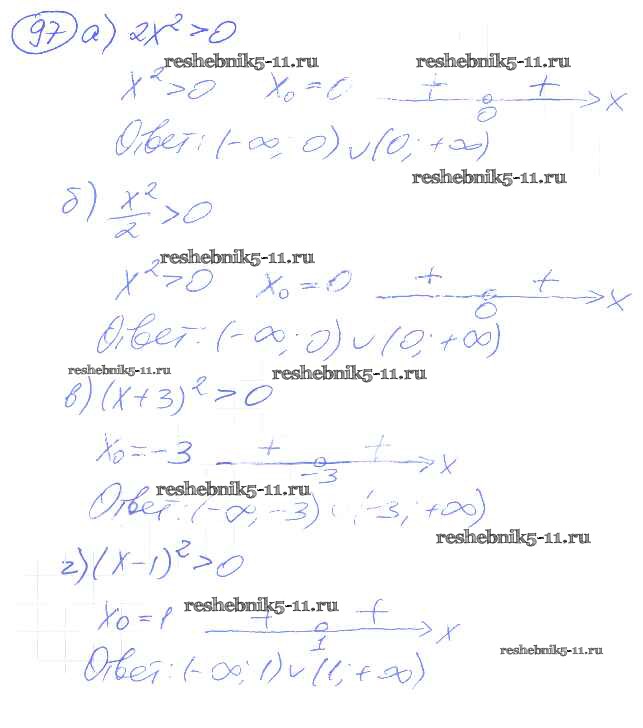 97 а) 2x² > 0
reshebnik5-11.ru reshebnik5-11.ru
x² > 0 x₀ = 0 + + 0 x
Ответ: (-∞; 0) ∪ (0; +∞)
reshebnik5-11.ru
б) x²/2 > 0
reshebnik5-11.ru
x² > 0 x₀ = 0 + + 0 x
Ответ: (-∞; 0) ∪ (0; +∞)
reshebnik5-11.ru reshebnik5-11.ru
в) (x+3)² > 0
x₀ = -3 + + -3 x
reshebnik5-11.ru
Ответ: (-∞; -3) ∪ (-3; +∞)
reshebnik5-11.ru
г) (x-1)² > 0
reshebnik5-11.ru
x₀ = 1 + + 1 x
reshebnik5-11.ru
Ответ: (-∞; 1) ∪ (1; +∞)